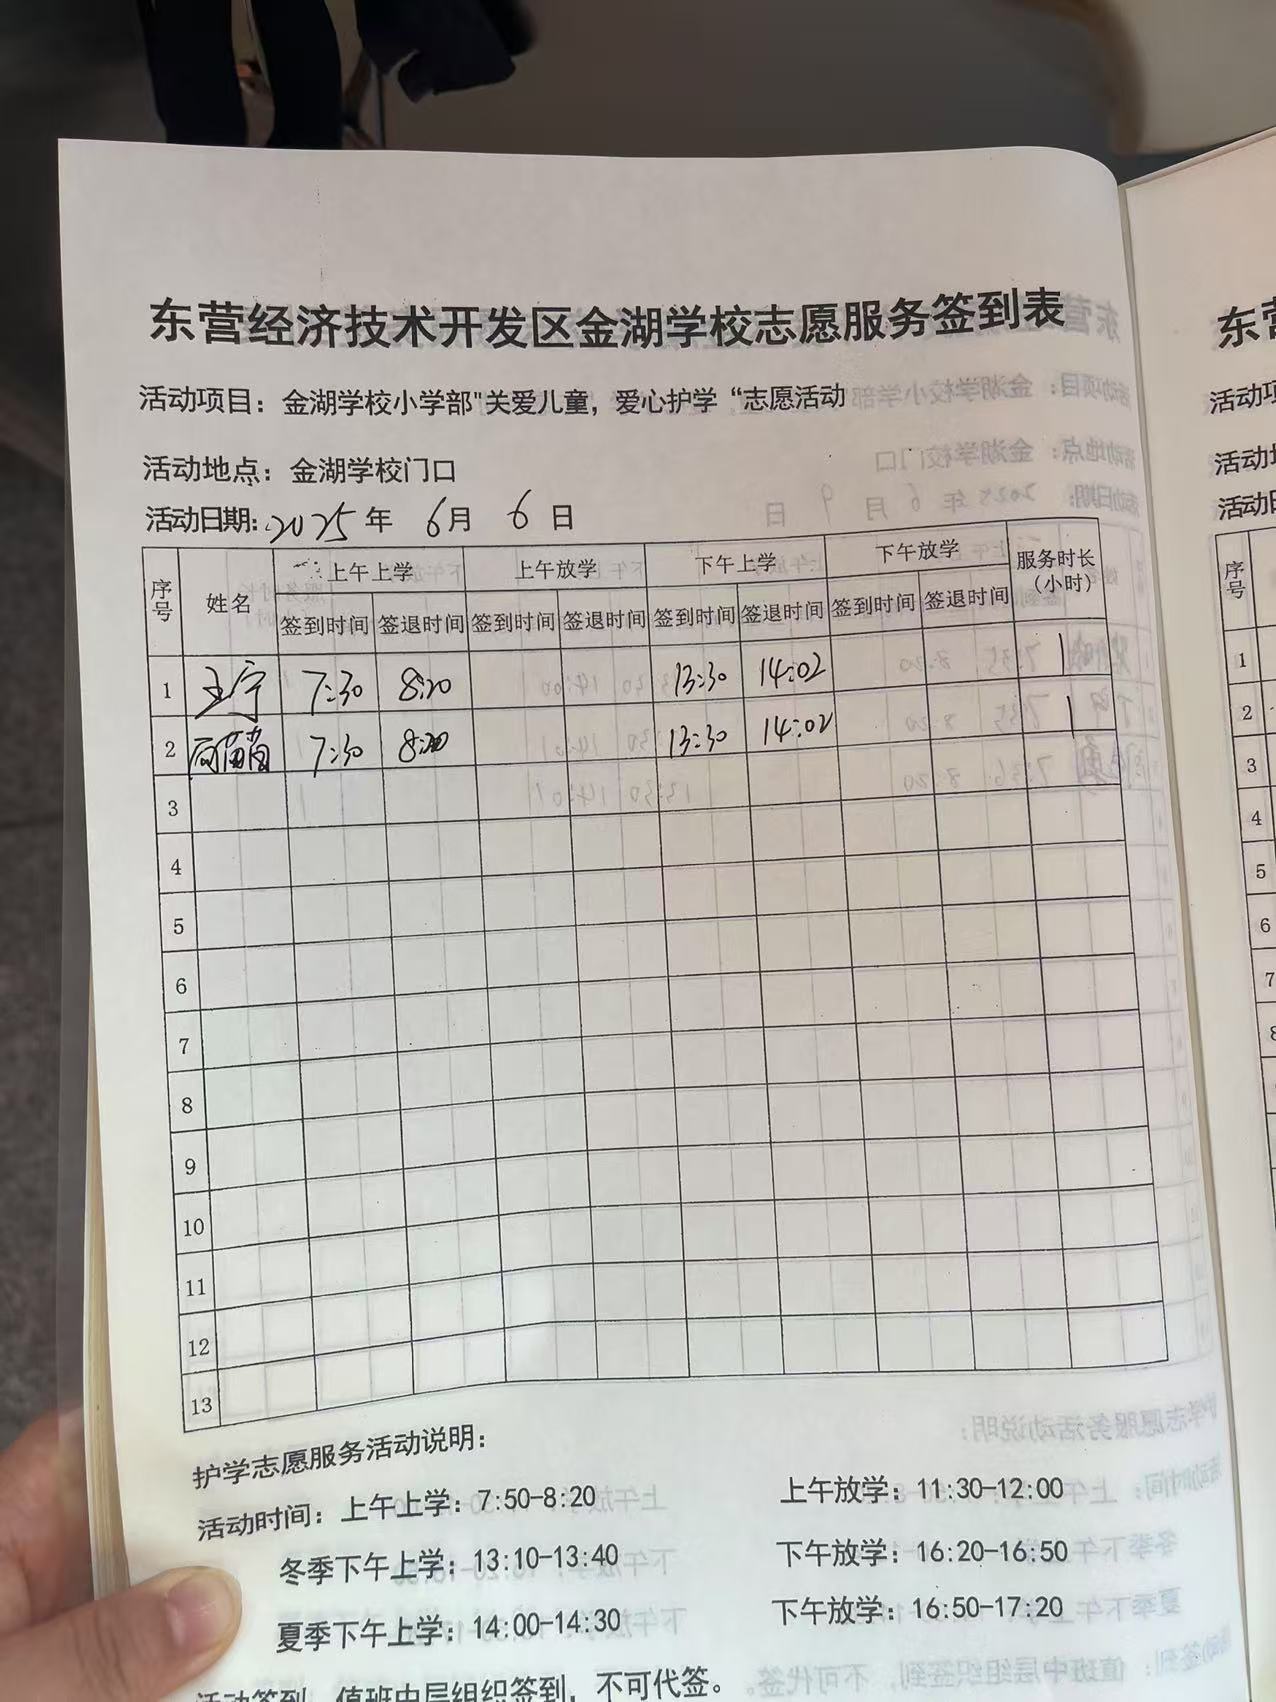 东营经济技术开发区金湖学校志愿服务签到表
活动项目：金湖学校小学部"关爱儿童，爱心护学“志愿活动
活动地点：金湖学校门口
活动日期: 2025 年 6月 6 日
序号 姓名 上午上学 上午放学 下午上学 下午放学 服务时长（小时）
签到时间 签退时间 签到时间 签退时间 签到时间 签退时间 签到时间 签退时间
1 王宁 7:30 8:20 13:30 14:02 1
2 苗苗 7:30 8:20 13:30 14:02 1
3
4
5
6
7
8
9
10
11
12
13
护学志愿服务活动说明：
活动时间：上午上学：7:50-8:20 上午放学：11:30-12:00
冬季下午上学：13:10-13:40 下午放学：16:20-16:50
夏季下午上学：14:00-14:30 下午放学：16:50-17:20
活动签到，值班中层组织签到，不可代签。
东营
活动项
活动地
活动日
序号
1
2
3
4
5
6
7
8